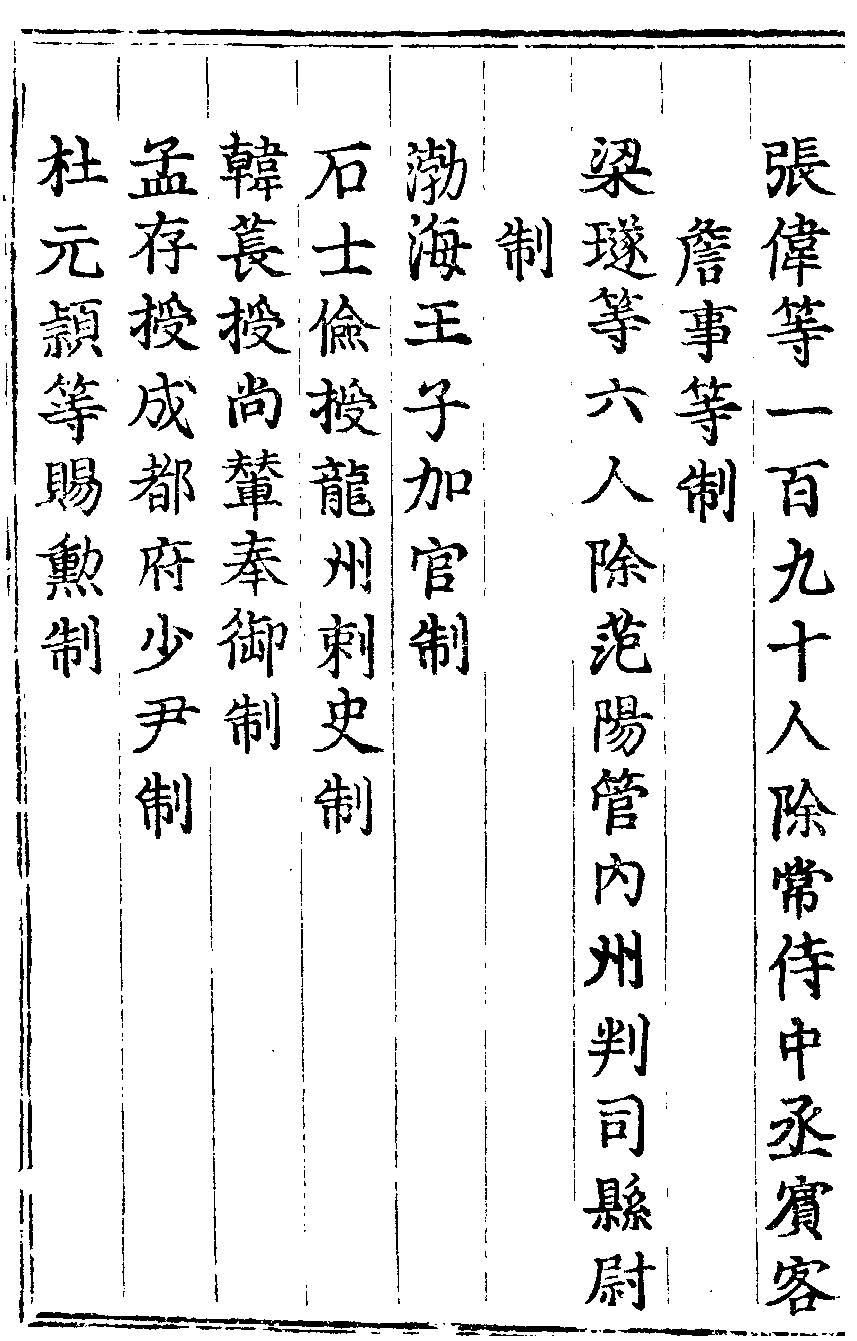 張偉等一百九十人除常侍中丞賓客
詹事等制
梁璲等六人除范陽管內州判司縣尉
制
渤海王子加官制
石士儉授龍州刺史制
韓萇授尚輦奉御制
孟存授成都府少尹制
杜元穎等賜勳制